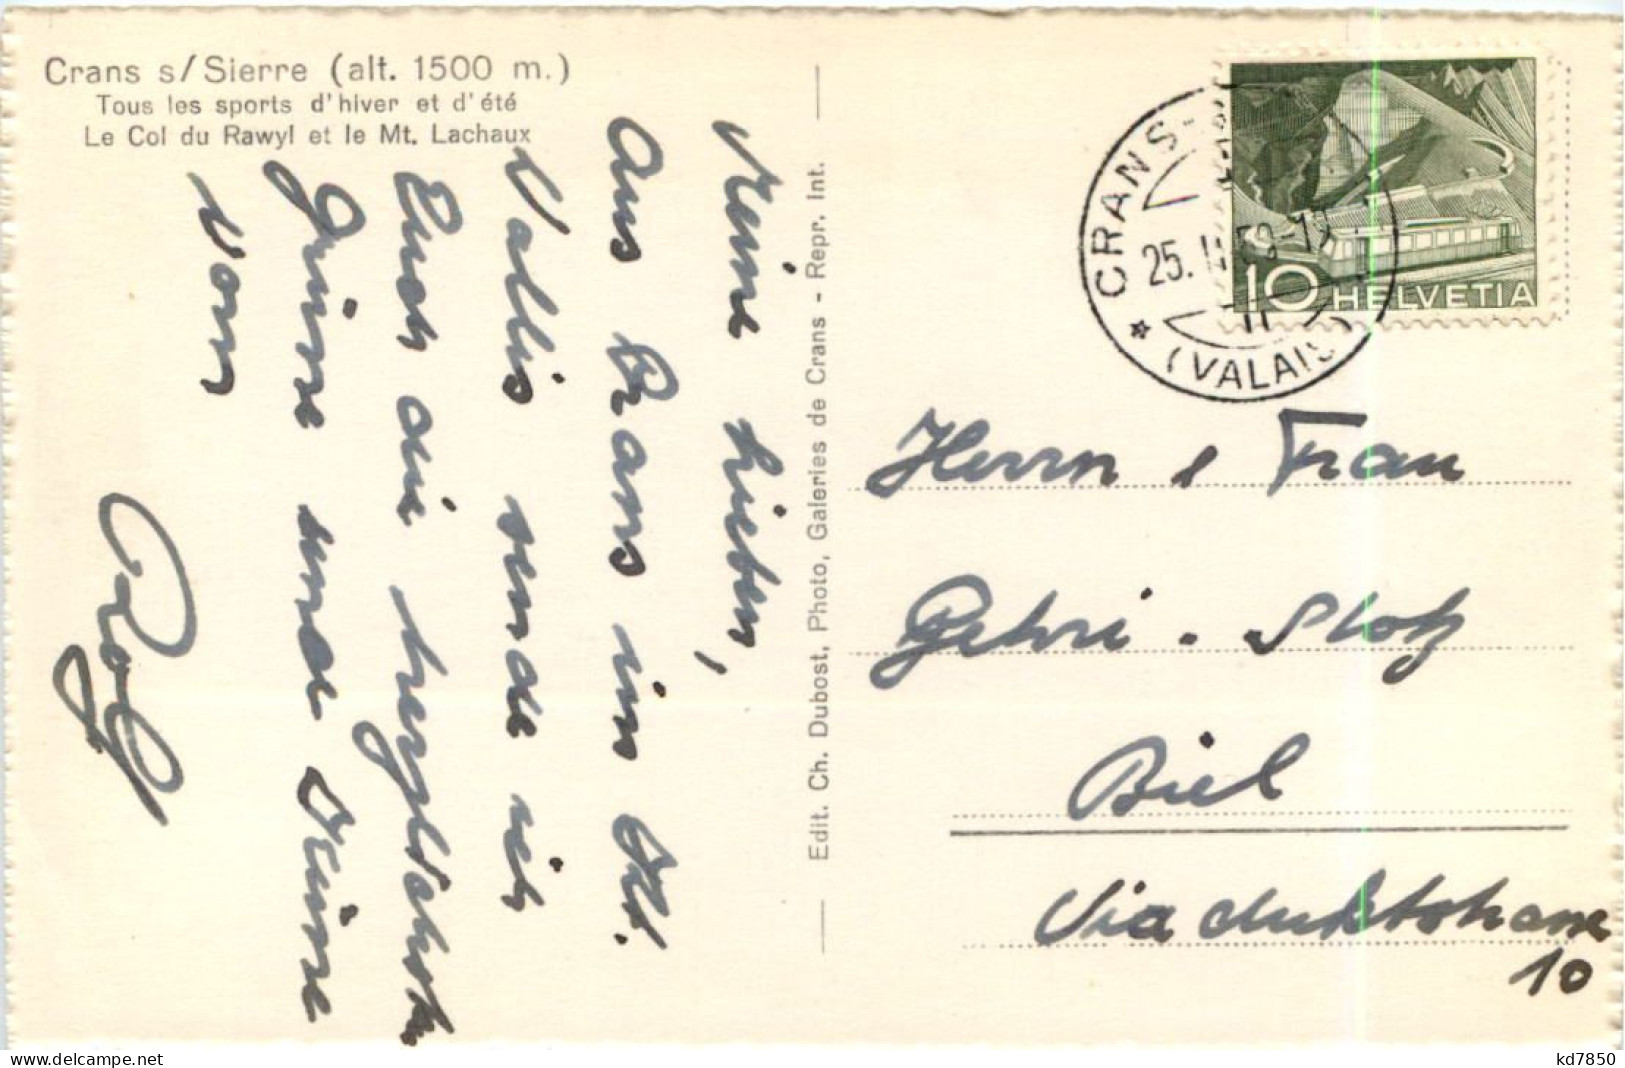 Crans s/Sierre (alt. 1500 m.)
Tous les sports d'hiver et d'été
Le Col du Rawyl et le Mt. Lachaux
Meine Lieben,
Aus Crans im
Wallis sende ich
Euch die herzlichsten
Grüsse und Küsse
vom
Rolf
Edit. Ch. Dubost, Photo, Galeries de Crans - Repr. Int.
CRANS
25.
(VALAIS)
10 HELVETIA
Herrn & Frau
Gehri - Stotz
Biel
Viaduktstrasse
10
delcampe.net
kd7850